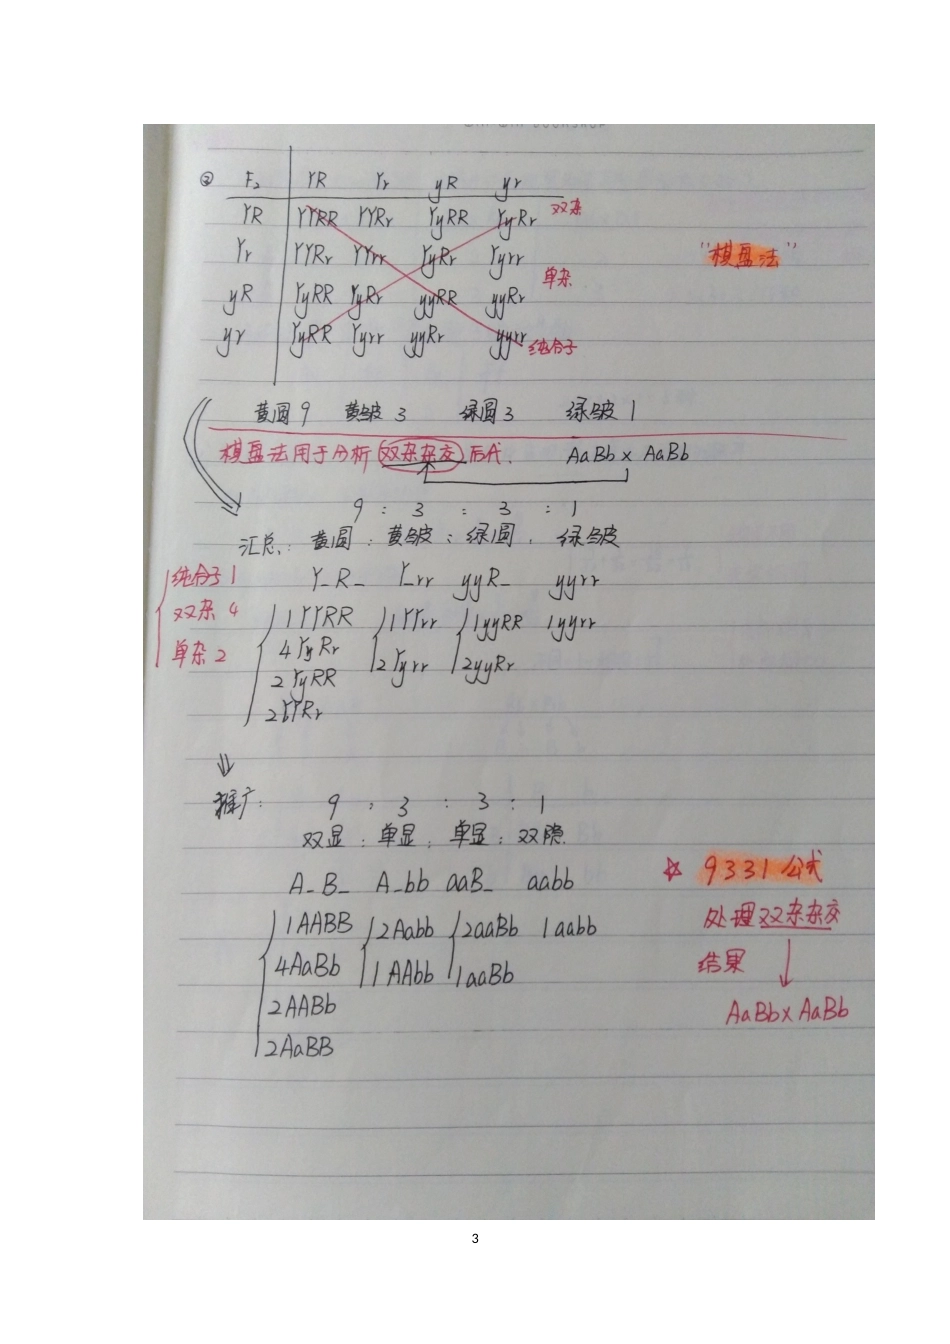 ② F₂ YR Yr yR yr
YR YYRR YYRr YyRR YyRr 双杂
Yr YYRr YYrr YyRr Yyrr
"棋盘法"
单杂
yR YyRR YyRr yyRR yyRr
yr YyRR Yyrr yyRr yyrr 纯合子
黄圆9 黄皱3 绿圆3 绿皱1
棋盘法用于分析双杂杂交后代. AaBb × AaBb
9 : 3 : 3 : 1
汇总: 黄圆 : 黄皱 : 绿圆 : 绿皱
纯合子1 Y_R_ Y_rr yyR_ yyrr
双杂 4 1YYRR 1YYrr 1yyRR 1yyrr
单杂 2 4YyRr 2Yyrr 2yyRr
2YyRR
2YYRr
⇓
推广: 9 : 3 : 3 : 1
双显 : 单显 : 单显 : 双隐
A_B_ A_bb aaB_ aabb
☆ 9331公式
1AABB 2Aabb 2aaBb 1aabb
处理双杂杂交
4AaBb 1AAbb 1aaBb
结果
2AABb
AaBb×AaBb
2AaBB
3